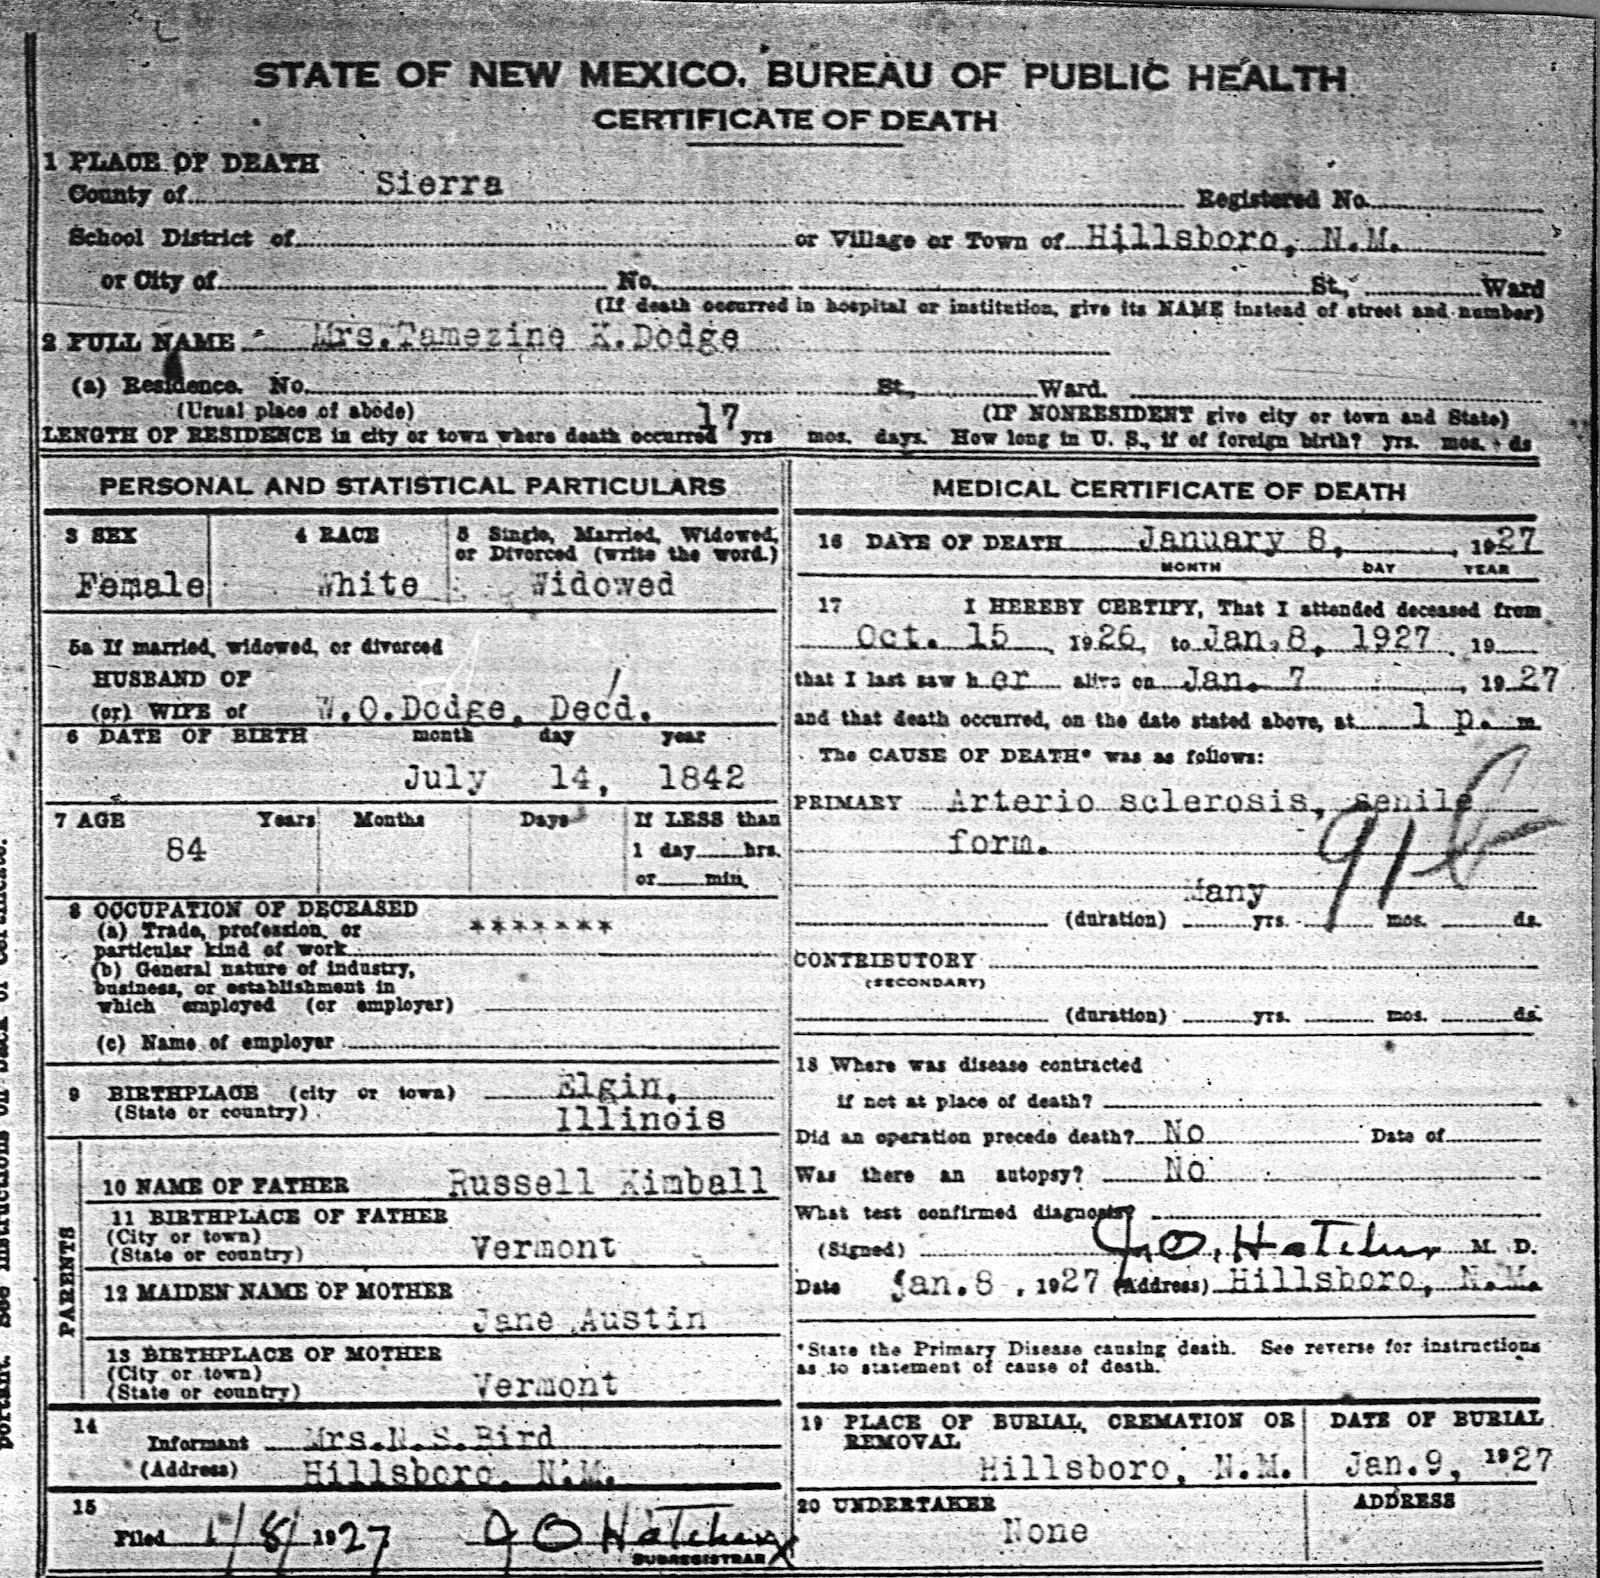 STATE OF NEW MEXICO, BUREAU OF PUBLIC HEALTH
CERTIFICATE OF DEATH
1 PLACE OF DEATH
County of Sierra Registered No.
School District of or Village or Town of Hillsboro, N.M.
or City of No. St., Ward
(If death occurred in hospital or institution, give its NAME instead of street and number)
2 FULL NAME Mrs.Tamezine K.Dodge
(a) Residence. No. St., Ward.
(Usual place of abode) (IF NONRESIDENT give city or town and State)
LENGTH OF RESIDENCE in city or town where death occurred 17 yrs mos. days. How long in U. S., if of foreign birth? yrs. mos. ds
PERSONAL AND STATISTICAL PARTICULARS
3 SEX
Female
4 RACE
White
5 Single, Married, Widowed,
or Divorced (write the word.)
Widowed
5a If married, widowed, or divorced
HUSBAND OF
(or) WIFE of W.O.Dodge, Decd.
6 DATE OF BIRTH month day year
July 14, 1842
7 AGE Years Months Days If LESS than
84 1 day hrs.
or min.
8 OCCUPATION OF DECEASED
(a) Trade, profession, or
particular kind of work *******
(b) General nature of industry,
business, or establishment in
which employed (or employer)
(c) Name of employer
9 BIRTHPLACE (city or town) Elgin,
(State or country) Illinois
PARENTS
10 NAME OF FATHER Russell Kimball
11 BIRTHPLACE OF FATHER
(City or town)
(State or country) Vermont
12 MAIDEN NAME OF MOTHER
Jane Austin
13 BIRTHPLACE OF MOTHER
(City or town)
(State or country) Vermont
14
Informant Mrs.N.S.Bird
(Address) Hillsboro, N.M.
15
Filed 1/8/1927 J O Hatcher
SUBREGISTRAR
MEDICAL CERTIFICATE OF DEATH
16 DATE OF DEATH January 8, 1927
MONTH DAY YEAR
17 I HEREBY CERTIFY, That I attended deceased from
Oct. 15 1926, to Jan.8, 1927, 19
that I last saw her alive on Jan. 7, 1927
and that death occurred, on the date stated above, at 1 p. m
The CAUSE OF DEATH* was as follows:
PRIMARY Arterio sclerosis, senile
form.
91
Many
(duration) yrs. mos. ds.
CONTRIBUTORY
(SECONDARY)
(duration) yrs. mos. ds.
18 Where was disease contracted
if not at place of death?
Did an operation precede death? No Date of
Was there an autopsy? No
What test confirmed diagnosis?
(Signed) J.O. Hatcher M. D.
Date Jan.8, 1927 (Address) Hillsboro, N.M.
*State the Primary Disease causing death. See reverse for instructions
as to statement of cause of death.
19 PLACE OF BURIAL, CREMATION OR
REMOVAL
Hillsboro, N.M.
DATE OF BURIAL
Jan.9, 1927
20 UNDERTAKER
None
ADDRESS